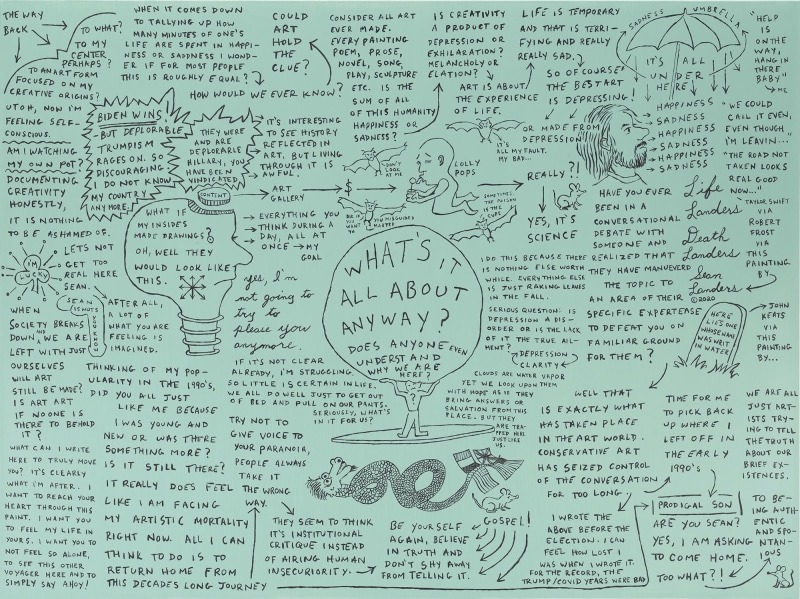 THE WAY
BACK
TO WHAT?
TO MY
CENTER
PERHAPS?
TO AN ART FORM
FOCUSED ON MY
CREATIVE ORIGINS?
UT OH, NOW I'M
FEELING SELF-
CONSCIOUS.
AM I WATCHING
MY OWN POT?
DOCUMENTING
CREATIVITY
HONESTLY,
IT IS NOTHING
TO BE ASHAMED OF.
I'M
LUCKY
LETS NOT
GET TOO
REAL HERE
SEAN.
SEAN IS NUTS
YOU KNOW
WHEN
SOCIETY BREAKS
DOWN AND WE ARE
LEFT WITH JUST
OURSELVES
WILL ART
STILL BE MADE?
IS ART ART
IF NO ONE IS
THERE TO BEHOLD
IT?
WHAT CAN I WRITE
HERE TO TRULY MOVE
YOU? IT'S CLEARLY
WHAT I'M AFTER. I
WANT TO REACH YOUR
HEART THROUGH THIS
PAINT. I WANT YOU
TO FEEL MY LIFE IN
YOURS. I WANT YOU TO
NOT FEEL SO ALONE,
TO SEE THIS OTHER
VOYAGER HERE AND TO
SIMPLY SAY AHOY!
WHEN IT COMES DOWN
TO TALLYING UP HOW
MANY MINUTES OF ONE'S
LIFE ARE SPENT IN HAPPI-
NESS OR SADNESS I WOND-
ER IF FOR MOST PEOPLE
THIS IS ROUGHLY EQUAL?
HOW WOULD WE EVER KNOW?
COULD
ART
HOLD
THE
CLUE?
BIDEN WINS
BUT DEPLORABLE
TRUMPISM
RAGES ON. SO
DISCOURAGING
I DO NOT KNOW
MY COUNTRY
ANYMORE.
THEY WERE
AND ARE
DEPLORABLE
HILLARY, YOU
HAVE BEEN
VINDICATED
IT'S INTERESTING
TO SEE HISTORY
REFLECTED IN
ART, BUT LIVING
THROUGH IT IS
AWFUL.
CONTENT
ART
GALLERY
$
EVERYTHING YOU
THINK DURING A
DAY, ALL AT
ONCE
MY
GOAL
WHAT IF
MY INSIDES
MADE DRAWINGS?
OH, WELL THEY
WOULD LOOK LIKE
THIS.
yes, I'm
not going to
try to
please you
anymore.
AFTER ALL,
A LOT OF
WHAT YOU ARE
FEELING IS
IMAGINED.
THINKING OF MY POP-
ULARITY IN THE 1990'S,
DID YOU ALL JUST
LIKE ME BECAUSE
I WAS YOUNG AND
NEW OR WAS THERE
SOMETHING MORE?
IS IT STILL THERE?
IT REALLY DOES FEEL
LIKE I AM FACING
MY ARTISTIC MORTALITY
RIGHT NOW. ALL I CAN
THINK TO DO IS TO
RETURN HOME FROM
THIS DECADES LONG JOURNEY
IF IT'S NOT CLEAR
ALREADY, I'M STRUGGLING.
SO LITTLE IS CERTAIN IN LIFE.
WE ALL DO WELL JUST TO GET OUT
OF BED AND PULL ON OUR PANTS.
SERIOUSLY, WHAT'S
IN IT FOR US?
TRY NOT TO
GIVE VOICE TO
YOUR PARANOIA,
PEOPLE ALWAYS
TAKE IT
THE WRONG
WAY.
THEY SEEM TO THINK
IT'S INSTITUTIONAL
CRITIQUE INSTEAD
OF AIRING HUMAN
INSECURIORITY.
BE YOURSELF
AGAIN, BELIEVE
IN TRUTH AND
DON'T SHY AWAY
FROM TELLING IT.
GOSPEL!
CONSIDER ALL ART
EVER MADE.
EVERY PAINTING
POEM, PROSE,
NOVEL, SONG,
PLAY, SCULPTURE
ETC. IS THE
SUM OF ALL
OF THIS HUMANITY
HAPPINESS OR
SADNESS?
IS CREATIVITY
A PRODUCT OF
DEPRESSION OR
EXHILARATION?
MELANCHOLY OR
ELATION?
ART IS ABOUT
THE EXPERIENCE
OF LIFE.
DON'T
LOOK
AT ME
LOLLY
POPS
IT'S
ALL MY FAULT,
MY BAD...
YOU MISGUIDED
MASTER
SOMETIMES
THE POISON
IS THE
CURE
WHAT'S IT
ALL ABOUT
ANYWAY?
DOES ANYONE EVEN
UNDERSTAND
WHY WE ARE
HERE?
LIFE IS TEMPORARY
AND THAT IS TERRI-
FYING AND REALLY
REALLY SAD.
SO OF COURSE
THE BEST ART
IS DEPRESSING!
OR MADE FROM
DEPRESSION
REALLY?!
YES, IT'S
SCIENCE
SADNESS UMBRELLA
IT'S ALL
UNDER
HERE
HAPPINESS
SADNESS
HAPPINESS
SADNESS
HAPPINESS
SADNESS
"HELP
IS
ON THE
WAY,
HANG IN
THERE
BABY"
ME
"WE COULD
CALL IT EVEN,
EVEN THOUGH
I'M LEAVIN...
"THE ROAD NOT
TAKEN LOOKS
REAL GOOD
NOW..."
TAYLOR SWIFT
VIA
ROBERT
FROST
VIA
THIS
PAINTING
BY
Life
Landers
Death
Landers
Sean
Landers
©2020
HAVE YOU EVER
BEEN IN A
CONVERSATIONAL
DEBATE WITH
SOMEONE AND
REALIZED THAT
THEY HAVE MANUEVERD
THE TOPIC TO
AN AREA OF THEIR
SPECIFIC EXPERTEASE
TO DEFEAT YOU ON
FAMILIAR GROUND
FOR THEM?
I DO THIS BECAUSE THERE
IS NOTHING ELSE WORTH
WHILE. EVERYTHING ELSE
IS JUST RAKING LEAVES
IN THE FALL.
SERIOUS QUESTION: IS
DEPRESSION A DIS-
ORDER OR IS THE LACK
OF IT THE TRUE AIL-
MENT?
DEPRESSION
CLARITY
CLOUDS ARE WATER VAPOR
YET WE LOOK UPON THEM
WITH HOPE AS IF THEY
BRING ANSWERS OR
SALVATION FROM THIS
PLACE. BUT THEY
ARE TRA-
PPED HERE
JUST LIKE
US.
HERE
LIES ONE
WHOSE NAME
WAS WRIT
IN WATER
JOHN
KEATS
VIA
THIS
PAINTING
BY...
WELL THAT
IS EXACTLY WHAT
HAS TAKEN PLACE
IN THE ART WORLD.
CONSERVATIVE ART
HAS SEIZED CONTROL
OF THE CONVERSATION
FOR TOO LONG.
TIME FOR ME
TO PICK BACK
UP WHERE I
LEFT OFF IN
THE EARLY
1990'S
WE ARE ALL
JUST ART-
ISTS TRY-
ING TO TELL
THE TRUTH
ABOUT OUR
BRIEF EX-
ISTENCES.
I WROTE THE
ABOVE BEFORE THE
ELECTION. I CAN
FEEL HOW LOST I
WAS WHEN I WROTE IT.
FOR THE RECORD, THE
TRUMP/COVID YEARS WERE BAD
PRODIGAL SON
ARE YOU SEAN?
YES, I AM ASKING
TO COME HOME.
TOO WHAT?!
TO BE-
ING AUTH-
ENTIC AND
SPO-
NTAN-
IOUS